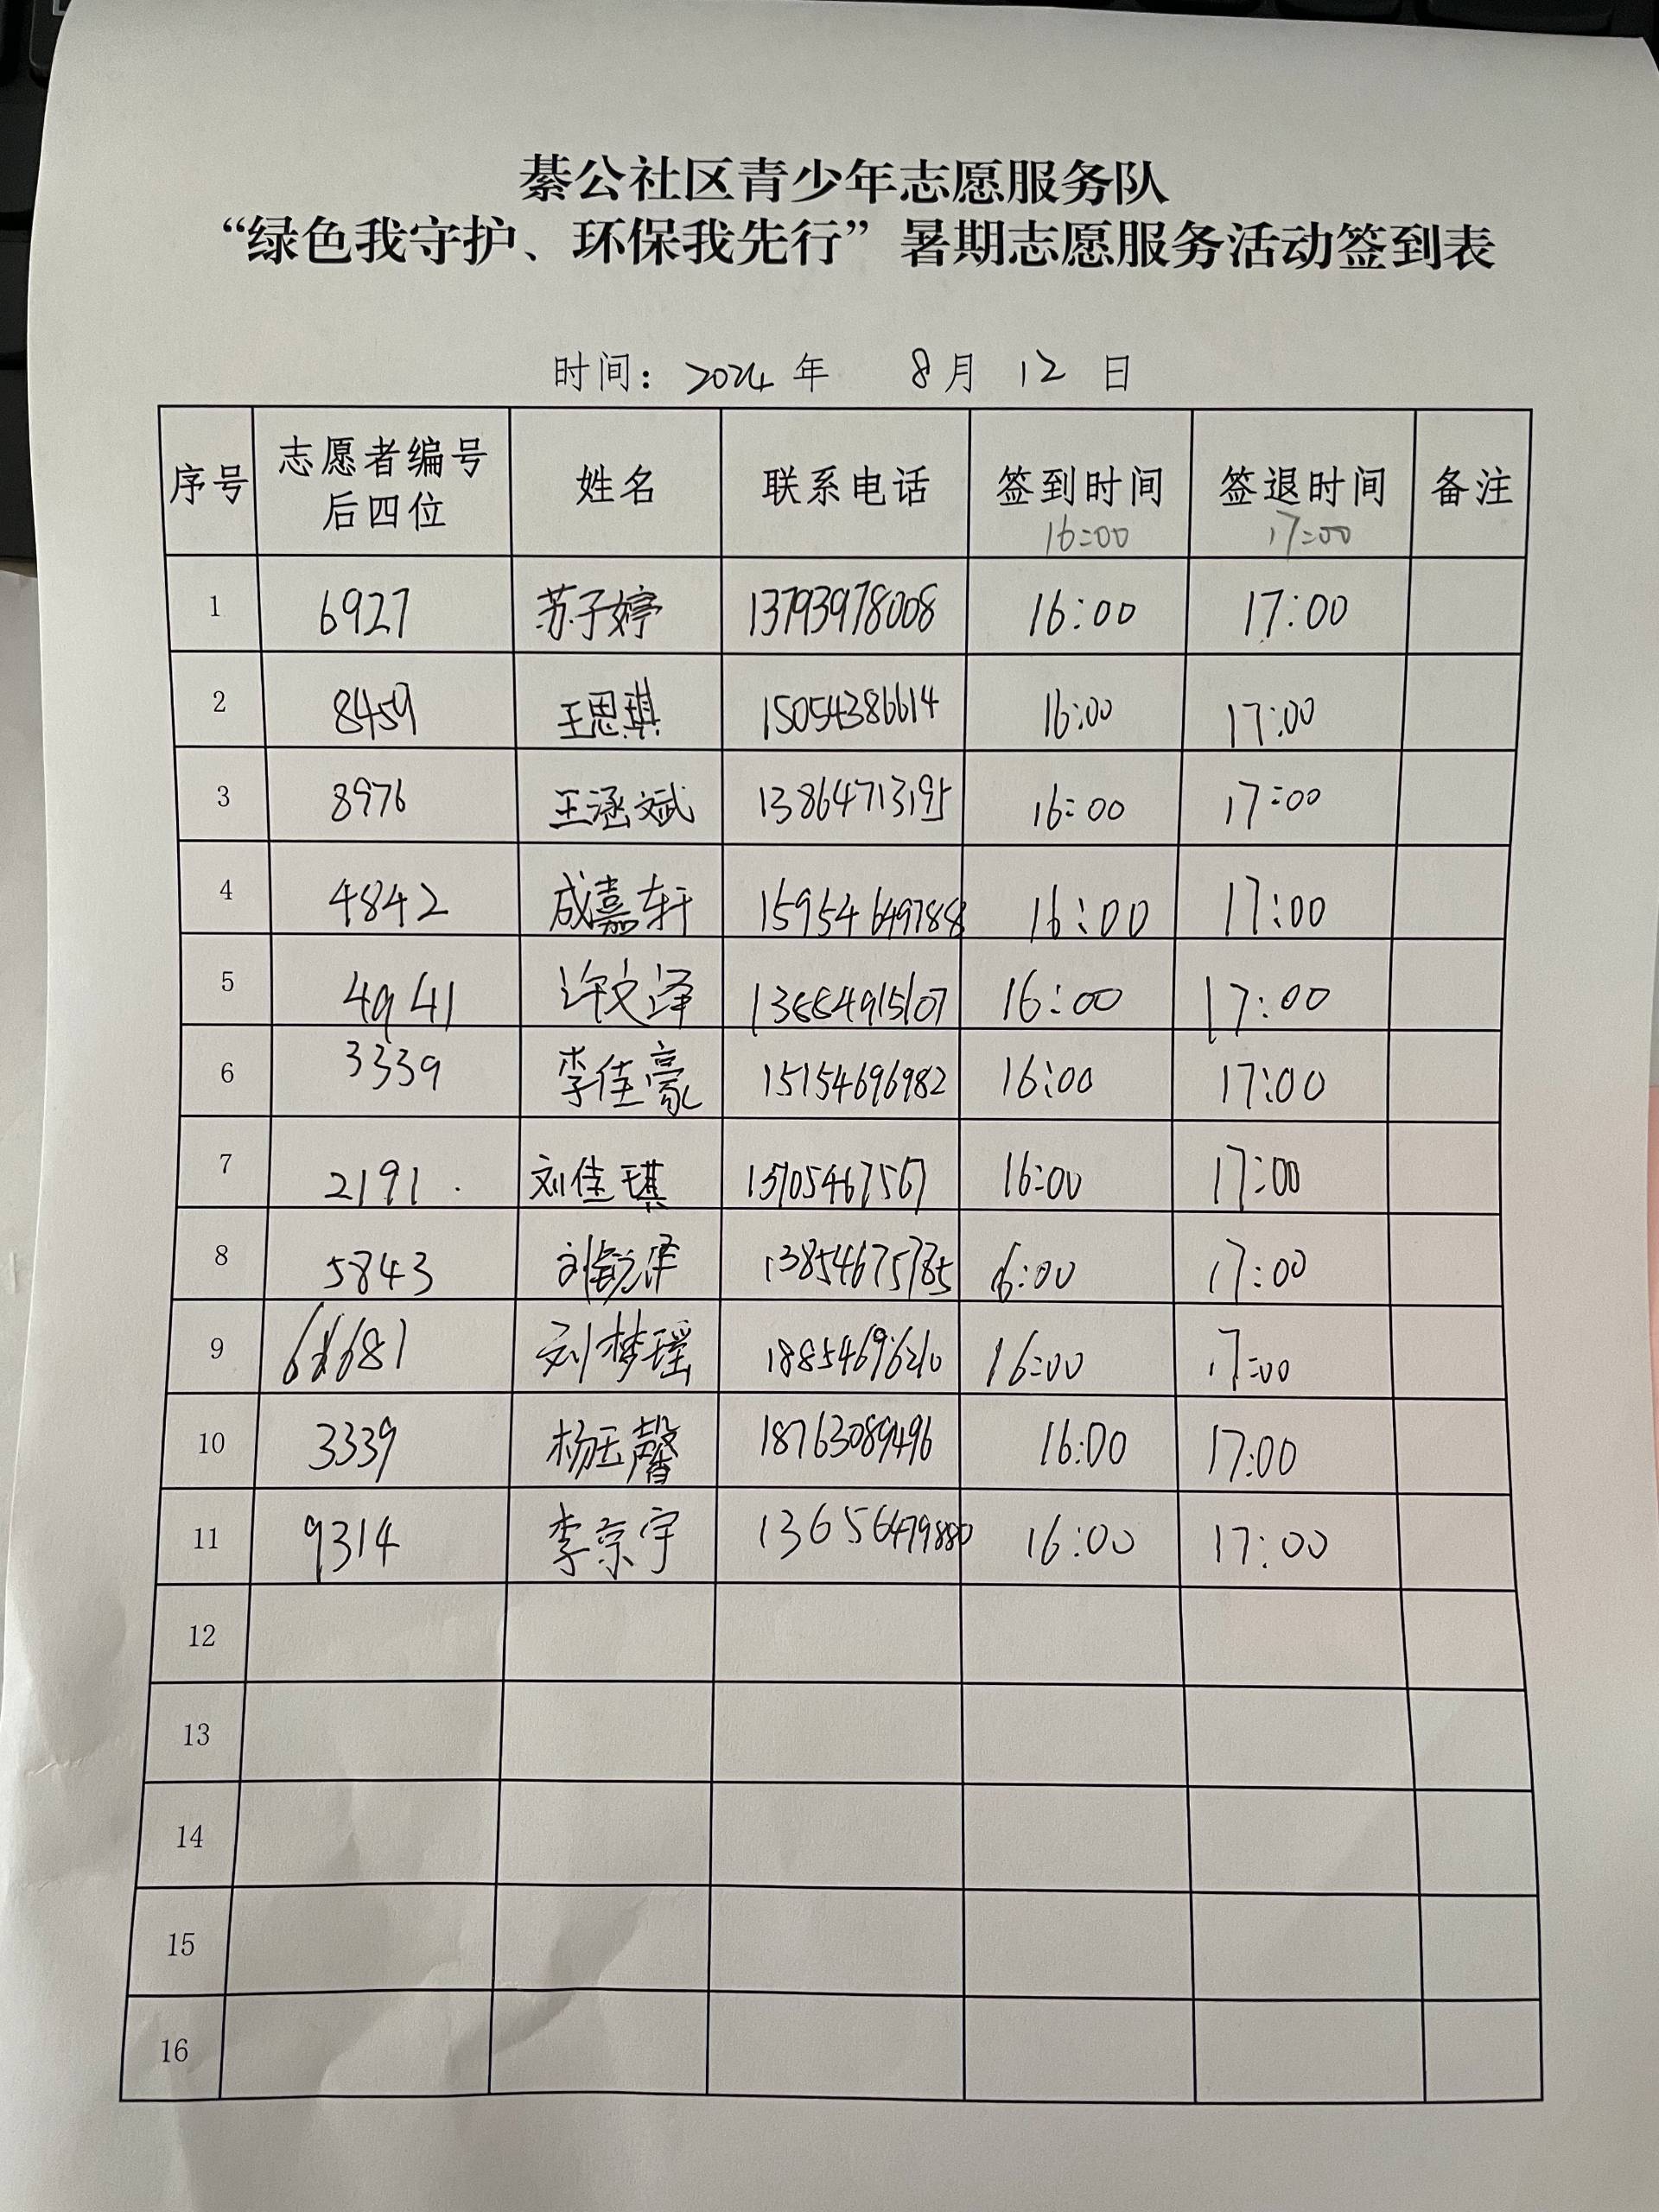 綦公社区青少年志愿服务队
“绿色我守护、环保我先行”暑期志愿服务活动签到表
时间：2024年 8月 12 日
序号 志愿者编号后四位 姓名 联系电话 签到时间 16:00 签退时间 17:00 备注
1 6927 苏子婷 13793978008 16:00 17:00
2 8459 王思琪 15054386614 16:00 17:00
3 8976 王涵斌 16:00 17:00
4 4842 成嘉轩 16:00 17:00
5 4941 许文泽 16:00 17:00
6 3339 李佳豪 15154696982 16:00 17:00
7 2191 刘佳琪 16:00 17:00
8 5843 16:00 17:00
9 刘梦瑶 18854696210 16:00 17:00
10 3339 杨玉馨 18763089496 16:00 17:00
11 9314 李京宇 16:00 17:00
12
13
14
15
16